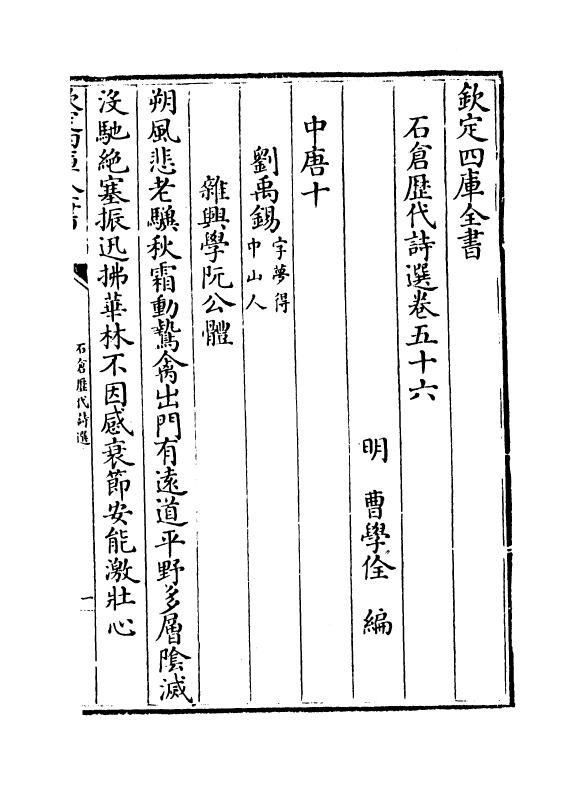 欽定四庫全書
石倉歴代詩選卷五十六
明 曹學佺 編
中唐十
劉禹錫字夢得
中山人
雜興學阮公體
朔風悲老驥秋霜動鷙禽出門有遠道平野多層陰滅
没馳絶塞振迅拂華林不因感衰節安能激壯心
石倉歴代詩選
一